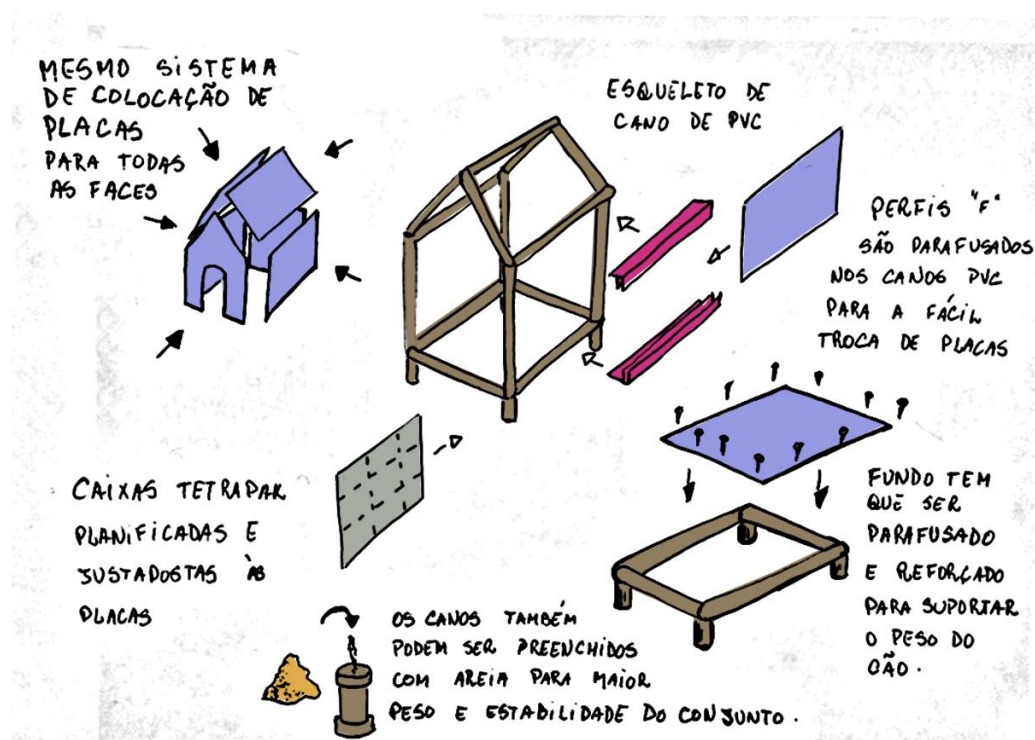 MESMO SISTEMA
DE COLOCAÇÃO DE
PLACAS
PARA TODAS
AS FACES
ESQUELETO DE
CANO DE PVC
PERFIS "F"
SÃO PARAFUSADOS
NOS CANOS PVC
PARA A FÁCIL
TROCA DE PLACAS
CAIXAS TETRAPAK
PLANIFICADAS E
JUSTADOSTAS ÀS
PLACAS
FUNDO TEM
QUE SER
PARAFUSADO
E REFORÇADO
PARA SUPORTAR
O PESO DO
CÃO.
OS CANOS TAMBÉM
PODEM SER PREENCHIDOS
COM AREIA PARA MAIOR
PESO E ESTABILIDADE DO CONJUNTO.